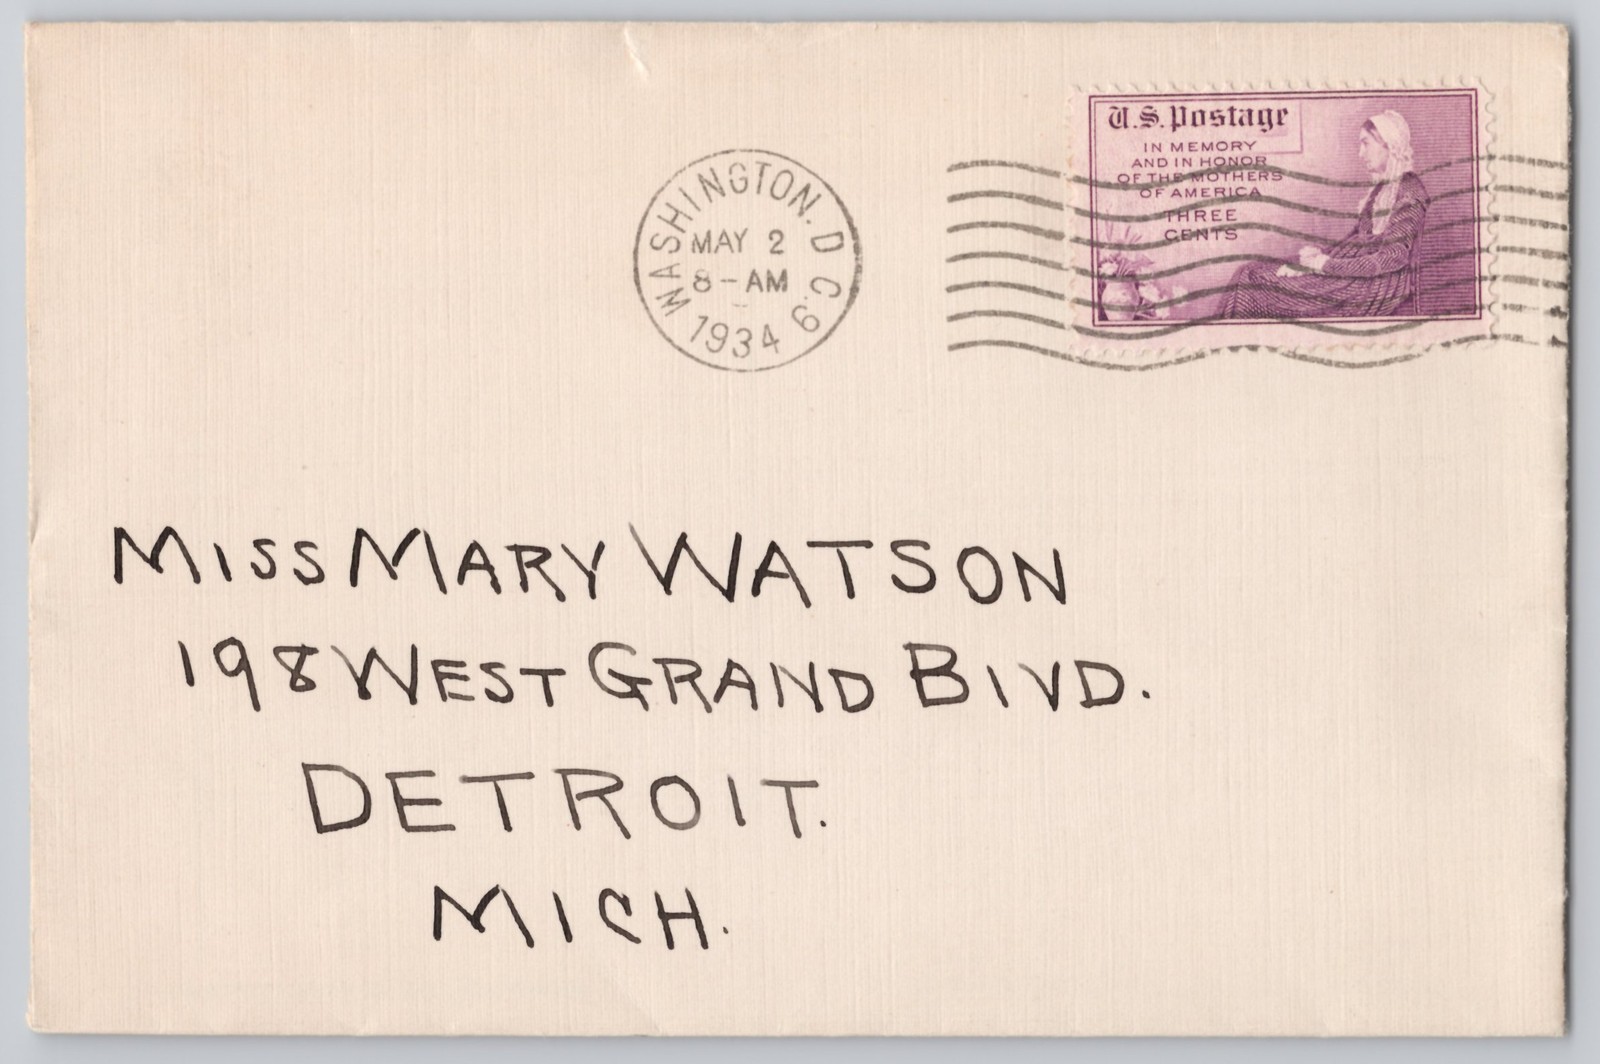 U.S. Postage
IN MEMORY
AND IN HONOR
OF THE MOTHERS
OF AMERICA
THREE
CENTS
WASHINGTON. D C. 6
MAY 2
8-AM
1934
MISS MARY WATSON
198 WEST GRAND BLVD.
DETROIT.
MICH.